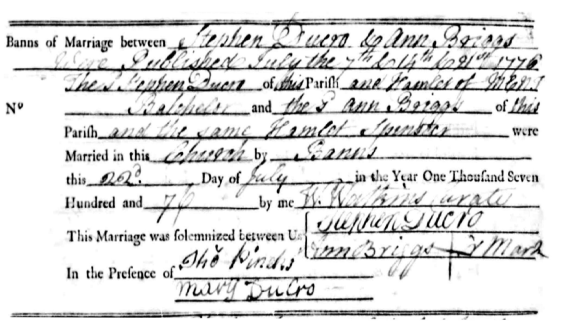 Banns of Marriage between Stephen Ducro & Ann Briggs
Were Published July the 7th & 14th & 21st 1776
The sd Stephen Ducro of this Parish and Hamlet of
No Batchelor and the sd Ann Briggs of this
Parish and the same Hamlet Spinster were
Married in this Church by Banns
this 22d. Day of July in the Year One Thousand Seven
Hundred and 76 by me W. Watkins Curate
This Marriage was solemnized between Us Stephen Ducro
Ann Briggs X Mark
In the Presence of Tho
Mary Ducro